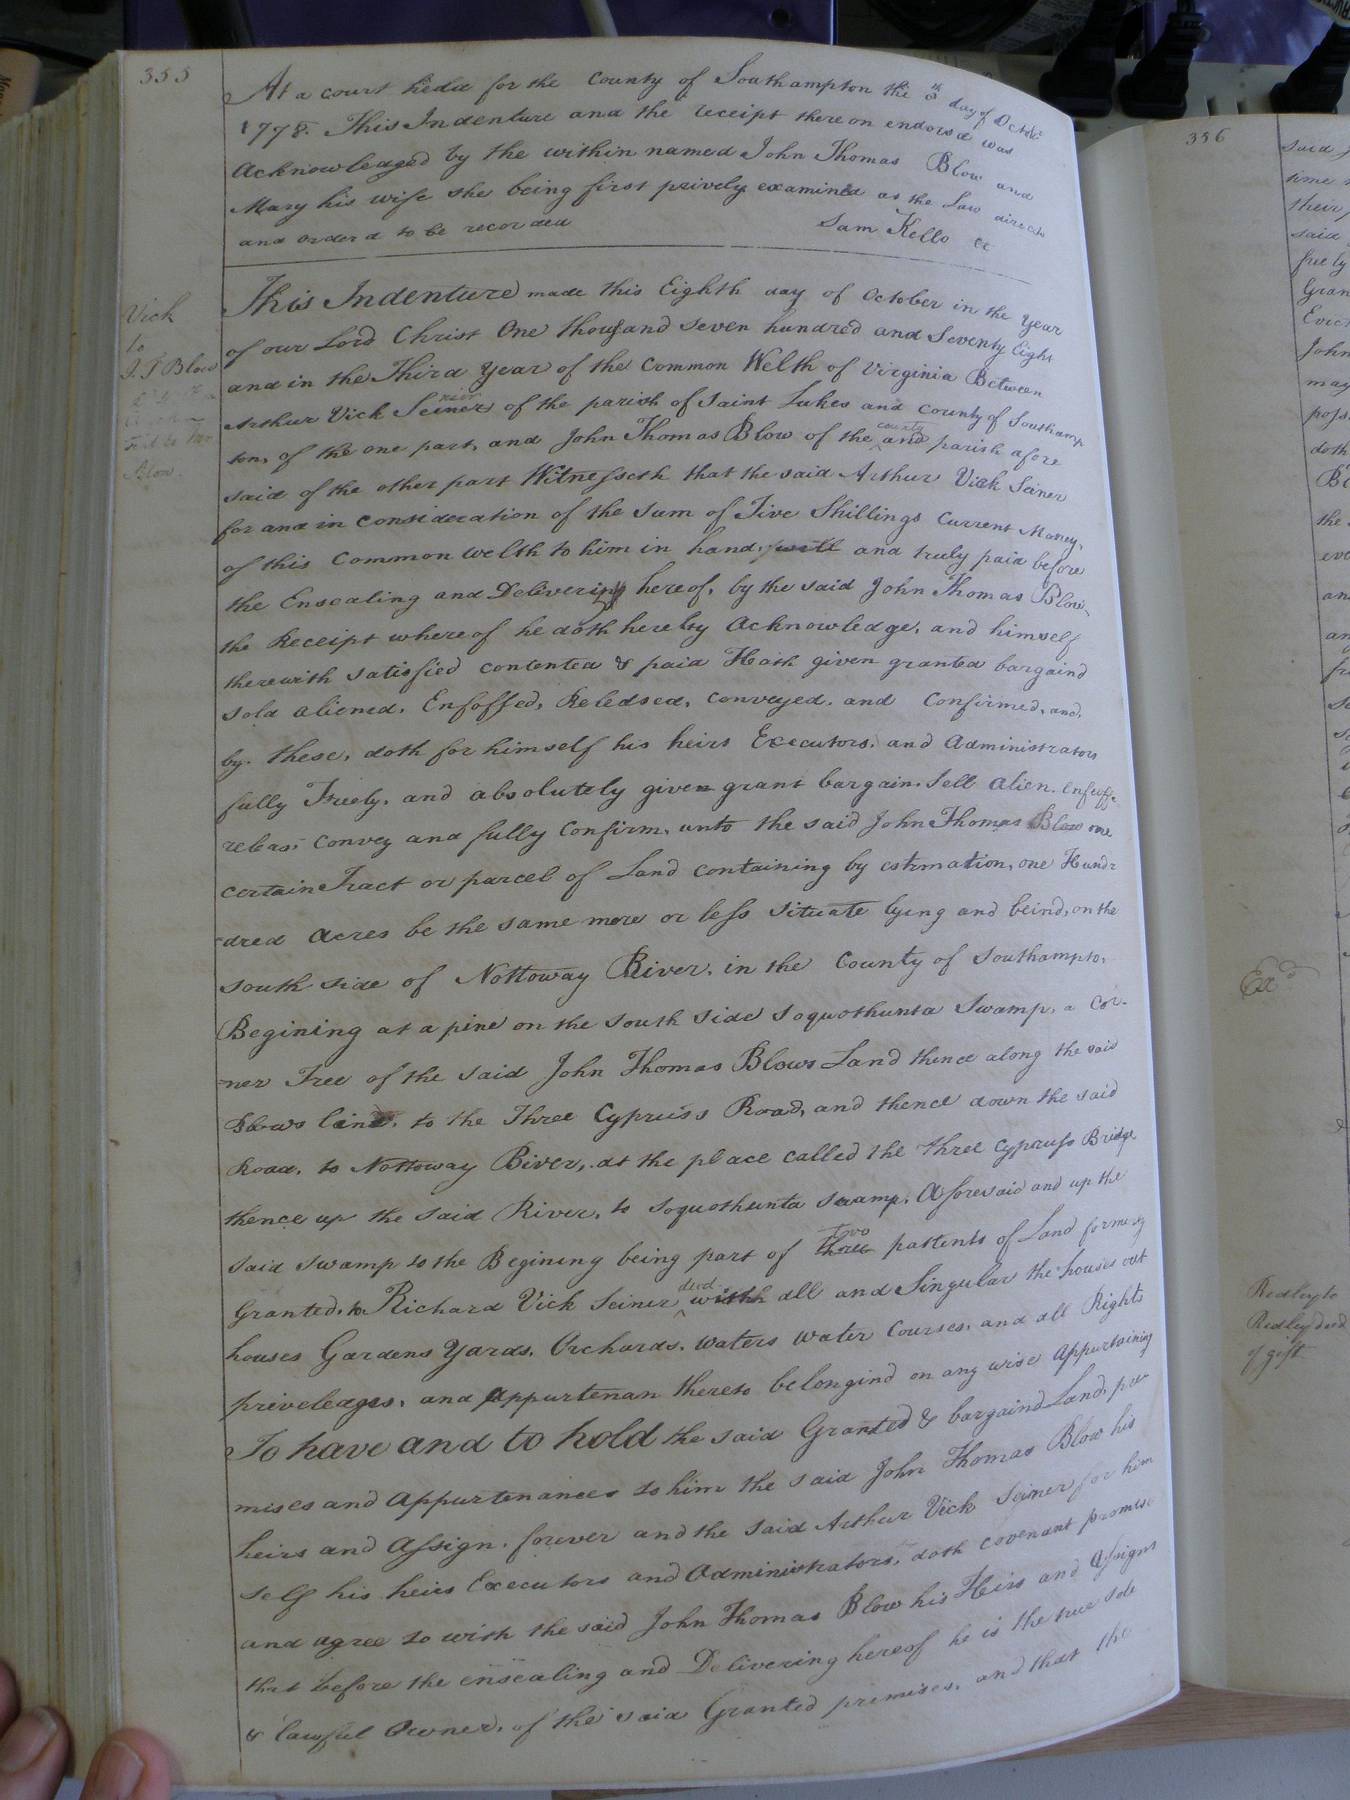 355
At a court held for the County of Southampton the 8th day of Octobr
1778. This Indenture and the receipt thereon endorsd was
Acknowledged by the within named John Thomas Blow and
Mary his wife she being first privily examined as the Law directs
and orderd to be recorded Sam Kello Cc
Vick
to
J. T Blow
Blow.
This Indenture made this Eighth day of October in the Year
of our Lord Christ One thousand seven hundred and Seventy Eight
and in the Third Year of the Common Welth of Virginia Between
Arthur Vick Seiner of the parish of Saint Lukes and county of Southamp
ton, of the one part, and John Thomas Blow of the county and parish afore
said of the other part Witnesseth that the said Arthur Vick Seiner
for and in consideration of the Sum of Five Shillings Current Money,
of this Common welth to him in hand, well and truly paid before
the Ensealing and Delivering hereof, by the said John Thomas Blow,
the Receipt whereof he doth hereby Acknowledge, and himself
therewith satisfied contented & paid Hath given granted bargaind
Sold aliened, Enfoffed, Reledsed, conveyed, and Confirmed, and,
by these, doth for himself his heirs Executors, and Administrators
fully Freely, and absolutely given grant bargain, Sell Alien. Enfeffe
releas convey and fully Confirm, unto the said John Thomas Blow one
certain Tract or parcel of Land containing by estimation, one Hund=
=dred Acres be the same more or less situate lying and beind, on the
south side of Nottoway River, in the County of Southampto,
Begining at a pine on the south side soquothunta Swamp, a Cor-
-ner Tree of the said John Thomas Blows Land thence along the said
Blows line, to the Three Cypruss Road, and thence down the said
Road, to Nottoway River, at the place called the three Cypruss Bridge
thence up the said River, to soquothunta swamp, Aforesaid and up the
said swamp to the Begining being part of three Two pattents of Land formerly
Granted, to Richard Vick Seiner decd with all and Singular the houses out
houses Gardens Yards, Orchards, waters water Courses, and all Rights
priveledges, and Appurtenan thereto belongind on any wise Appurtaining
To have and to hold the said Granted & bargaind Land, pre
mises and Appurtenances to him the said John Thomas Blow his
heirs and Assign, forever and the said Arthur Vick Seiner for him
self his heirs Executors and Administrators, doth covenant promise
and agree to with the said John Thomas Blow his Heirs and Assigns
that before the ensealing and Delivering hereof he is the true sole
& lawful Owner, of the said Granted premises, and that the
356
said
time
their
said
freely
Gran
Evict
John
may
poss
doth
Bl
the
Exd
Ridley to
Ridley deed
of gift